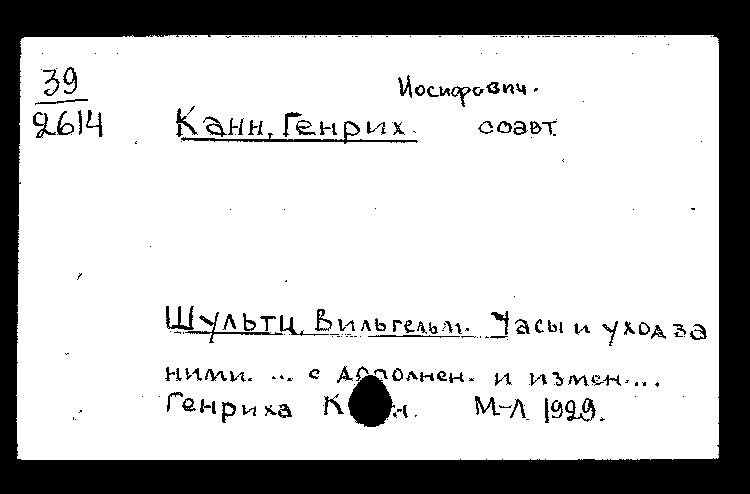 39
2614
Иосифович.
Канн, Генрих. соавт.
Шультц, Вильгельм. Часы и уход за
ними. ... с дополнен. и измен. ...
Генриха М-Л 1929.